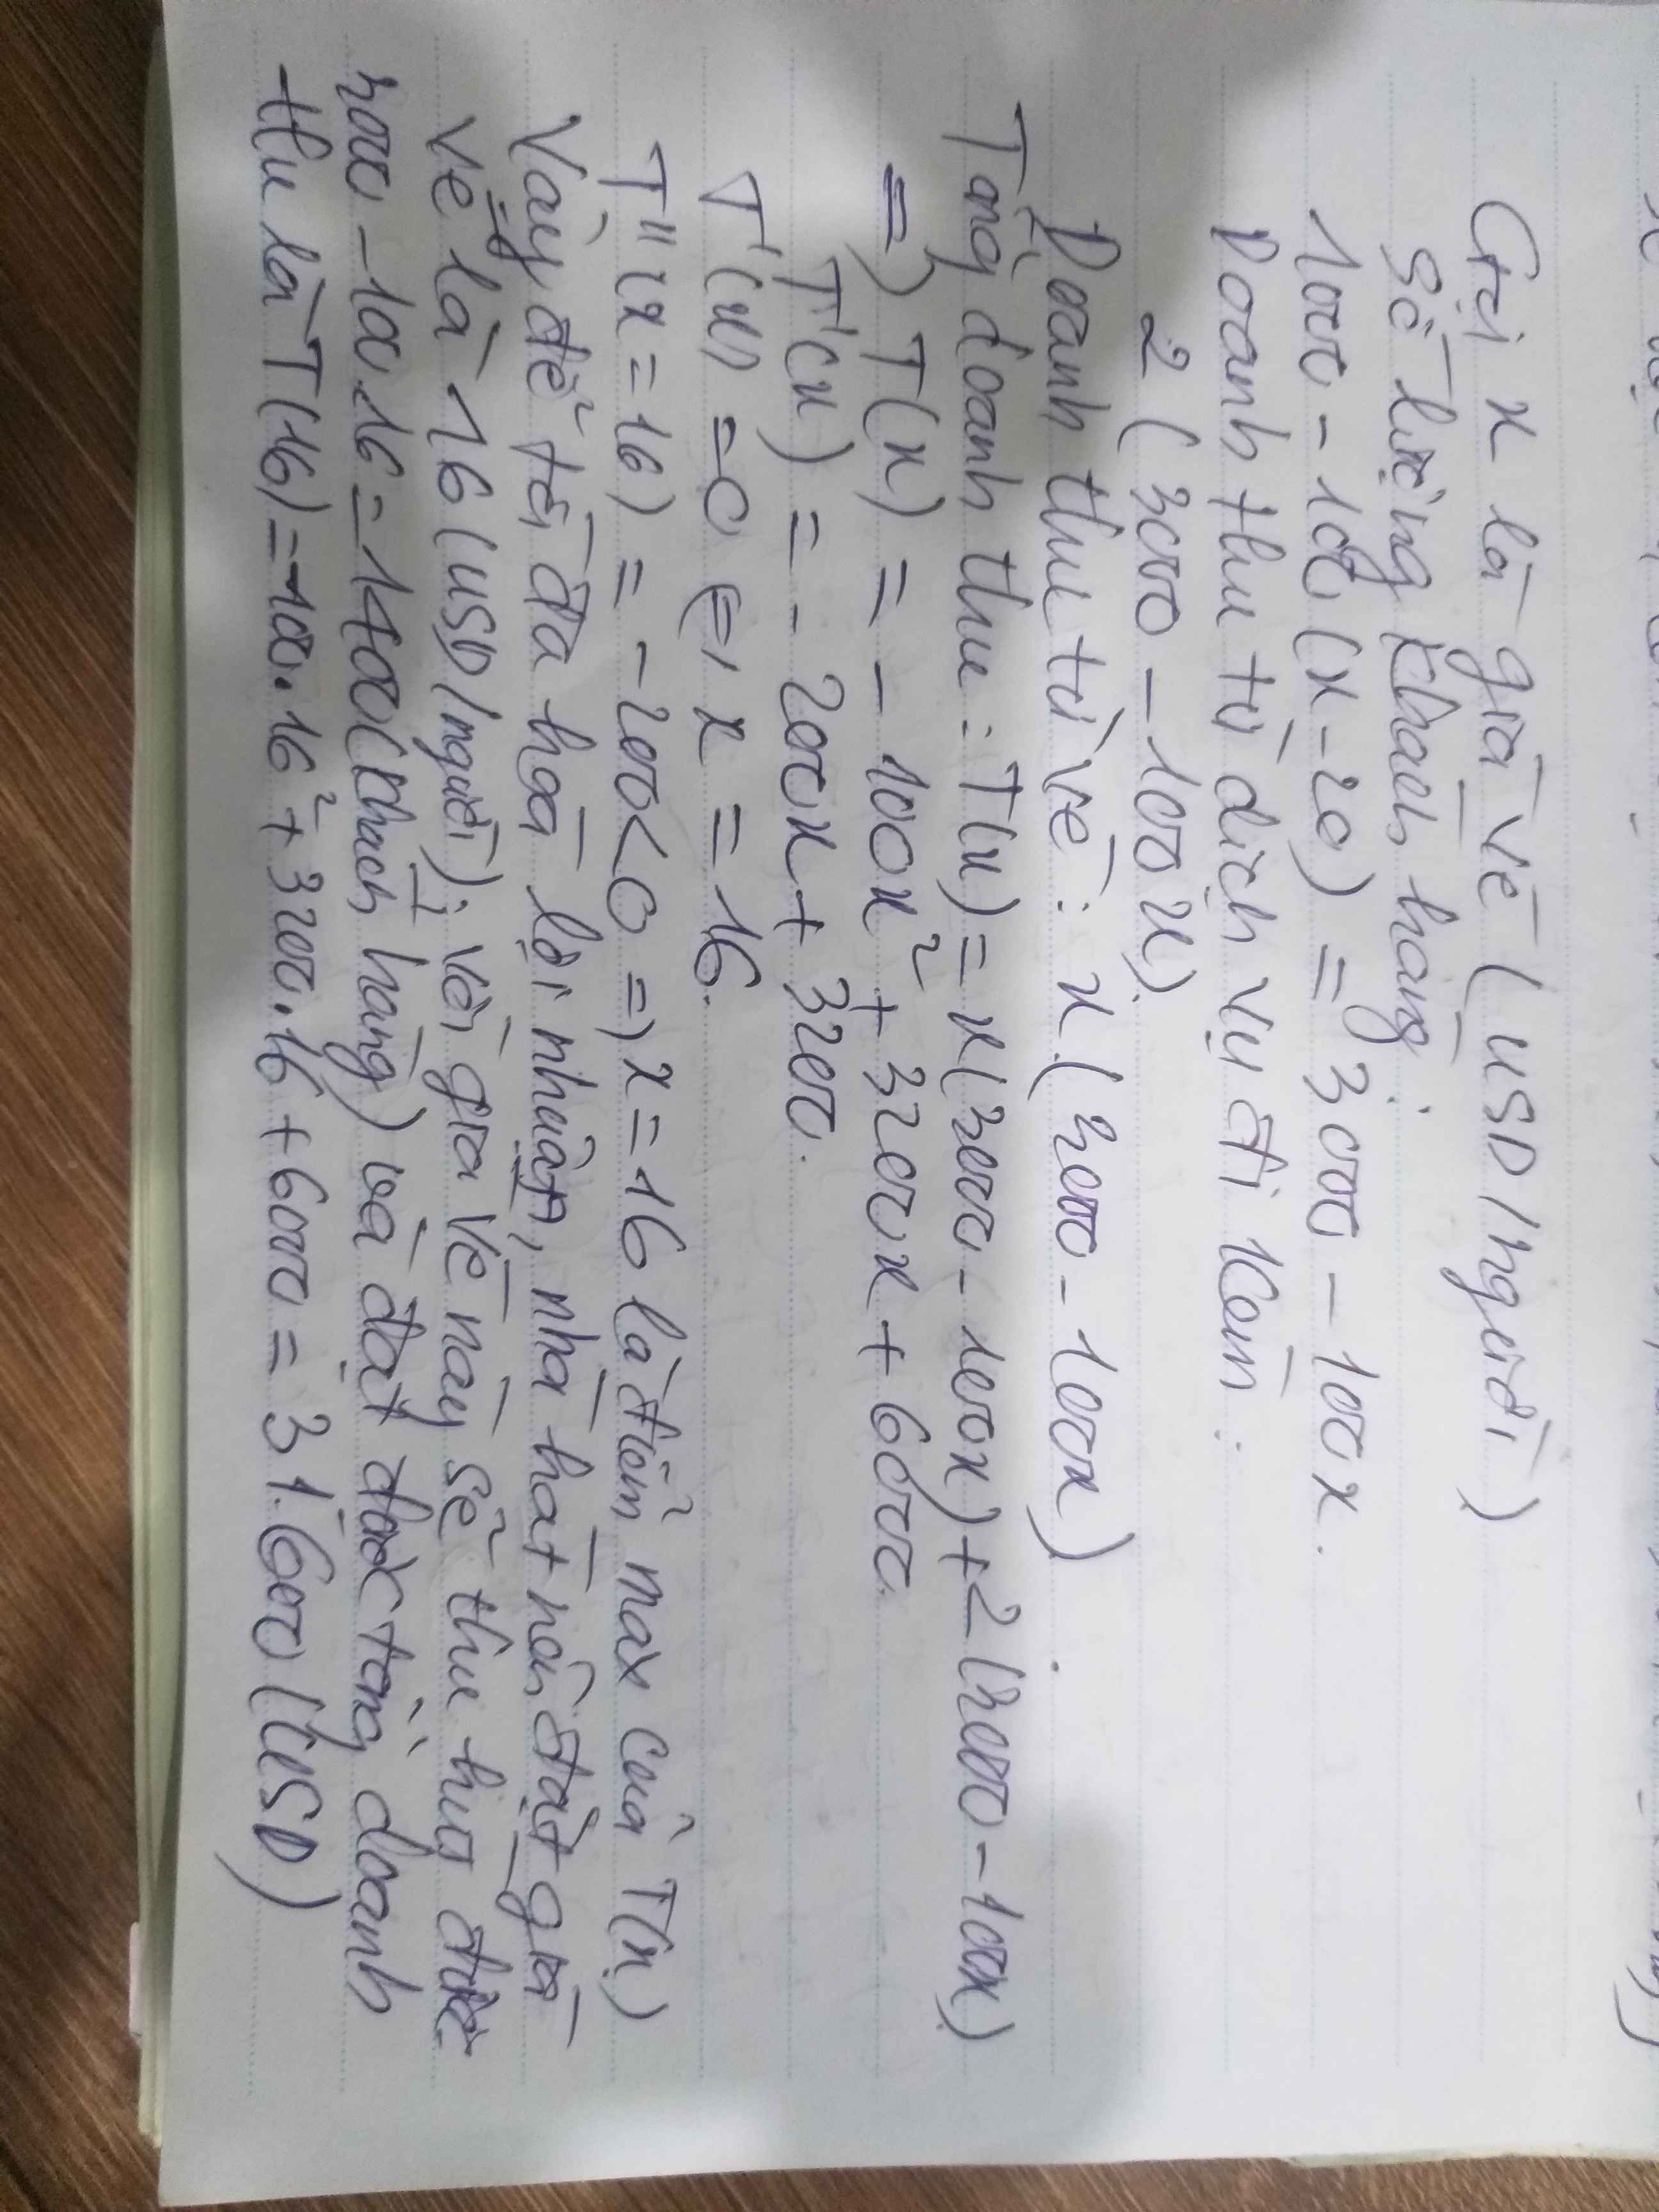 Gọi x là giá vé (USD/người)
Số lượng khách hàng:
1000 - 100(x-20) = 3000 - 100x.
Doanh thu từ dịch vụ đi kèm:
2(3000 - 100x).
Doanh thu từ vé: x(3000 - 100x)
Tổng doanh thu: T(x) = x(3000 - 100x) + 2(3000 - 100x)
=) T(x) = - 100x² + 3200x + 6000.
T'(x) = - 200x + 3200.
T'(x) = 0 (=) x = 16.
T"(x = 16) = - 200 < 0 =) x = 16 là điểm max của T(x)
Vậy để tối đa hoá lợi nhuận, nhà hát nên đặt giá
vé là 16 (USD/người); với giá vé này sẽ thu hút được
3000 - 100.16 = 1400 (khách hàng) và đạt được tổng doanh
thu là T(16) = -100.16² + 3200.16 + 6000 = 31.600 (USD)